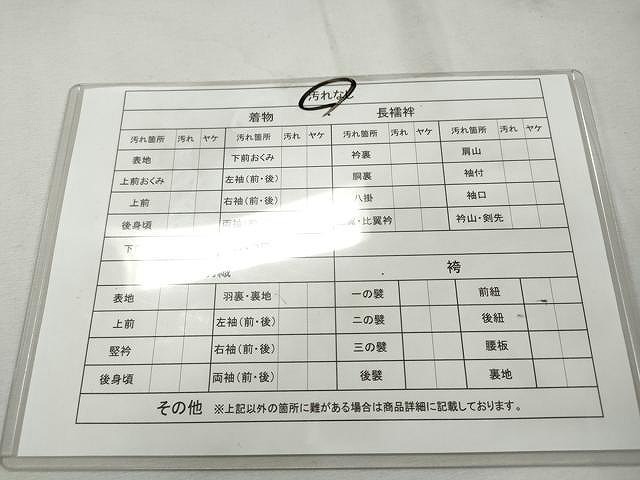 汚れなし
着物 長襦袢
汚れ箇所 汚れ ヤケ 汚れ箇所 汚れ ヤケ 汚れ箇所 汚れ ヤケ 汚れ箇所 汚れ ヤケ
表地 下前おくみ 衿裏 肩山
上前おくみ 左袖(前・後) 胴裏 袖付
上前 右袖(前・後) 八掛 袖口
後身頃 両袖(前・後) ・比翼衿 衿山・剣先
下
袴
表地 羽裏・裏地 一の襞 前紐
上前 左袖(前・後) 二の襞 後紐
竪衿 右袖(前・後) 三の襞 腰板
後身頃 両袖(前・後) 後襞 裏地
その他 ※上記以外の箇所に難がある場合は商品詳細に記載しております。